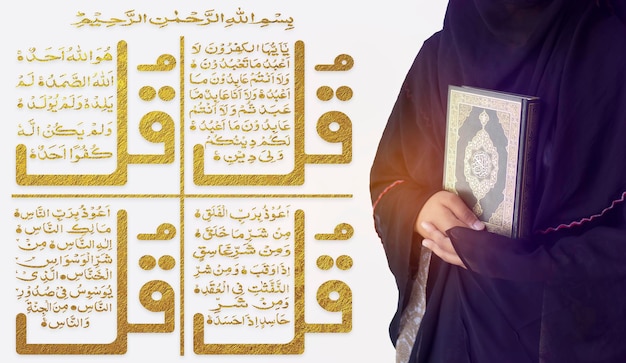 بِسْمِ اللهِ الرَّحْمٰنِ الرَّحِيْمِ
قُلْ
يٰٓاَيُّهَا الْكٰفِرُوْنَ لَآ
اَعْبُدُ مَا تَعْبُدُوْنَ
وَلَآ اَنْتُمْ عٰبِدُوْنَ مَآ
اَعْبُدُ وَلَآ اَنَا عَابِدٌ مَّا
عَبَدْتُّمْ وَلَآ اَنْتُمْ
عٰبِدُوْنَ مَآ اَعْبُدُ
لَكُمْ دِيْنُكُمْ
وَلِيَ دِيْنِ
قُلْ
هُوَ اللهُ اَحَدٌ
اَللهُ الصَّمَدُ لَمْ
يَلِدْ وَلَمْ يُوْلَدْ
وَلَمْ يَكُنْ لَّهٗ
كُفُوًا اَحَدٌ
قُلْ
اَعُوْذُ بِرَبِّ الْفَلَقِ
مِنْ شَرِّ مَا خَلَقَ
وَمِنْ شَرِّ غَاسِقٍ
اِذَا وَقَبَ وَمِنْ شَرِّ
النَّفّٰثٰتِ فِي الْعُقَدِ
وَمِنْ شَرِّ
حَاسِدٍ اِذَا حَسَدَ
قُلْ
اَعُوْذُ بِرَبِّ النَّاسِ
مَلِكِ النَّاسِ
اِلٰهِ النَّاسِ مِنْ
شَرِّ الْوَسْوَاسِ
الْخَنَّاسِ الَّذِيْ
يُوَسْوِسُ فِيْ صُدُوْرِ
النَّاسِ مِنَ الْجِنَّةِ
وَالنَّاسِ